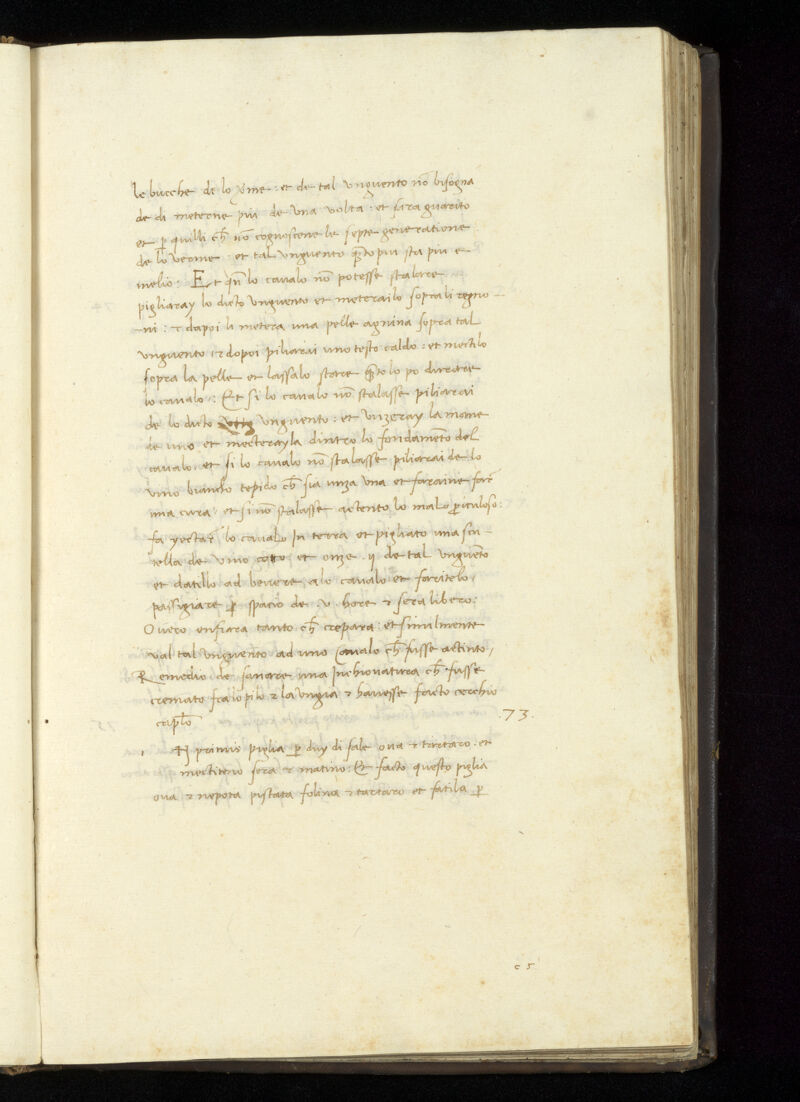 le bucche de lo v̄me : et de tal unguento nō bisogna
de di meterne piu de una volta : et sira guarito
et p̱ quilli ch̄ nō cognoscene le septe generatione
de lo verme : et tal unguento q̄to piu sta piu e
melio : Et qn̄ lo cavalo nō potesse stalare
pigliaray lo dicto unguento et meterailo sopra li regno
ni : & dapoi li metera una pelle agnina sopra tal
unguento , & dopoi piliarai uno testo caldo : et mectilo
sopra la pelle et lassalo stare q̄to lo po durare
lo cavalo : Et si lo cavalo nō stalasse piliarai
de lo dicto unguento : et unzeray la mane
de uno et mecterayla dintro lo fondamēto del
cavalo . et si lo cavalo nō stalasse piliarai de lo
vino biancho tepido ch̄ sia unza una et faraine far
una cura : et si nō stalasse actento lo malo p̱iculoso :
fa yectar lo cavalo in terra et pigliato una scu
tella de vino cocto et onze .ij. de tal unguēto
et datillo ad bevere alo cavalo et faritelo
passigiare p̱ spacio de .v. hore & sera libero :
Overo enfiara tanto ch̄ crepara : et similmente
val tal unguento ad uno Cavalo ch̄ fusse actinto ,
Remedio de sanare una Inchiovatura ch̄ fusse
cremato fra lo pilo & la ungia & havesse facto cerchio
cap̄lo .73.
In primis piglia p̱ duy di sale ova & tartaro : et
mectiteno sera & matino : Et facto questo piglia
ova & nepota pistata folina & tartaro et fatila p̱
c 5